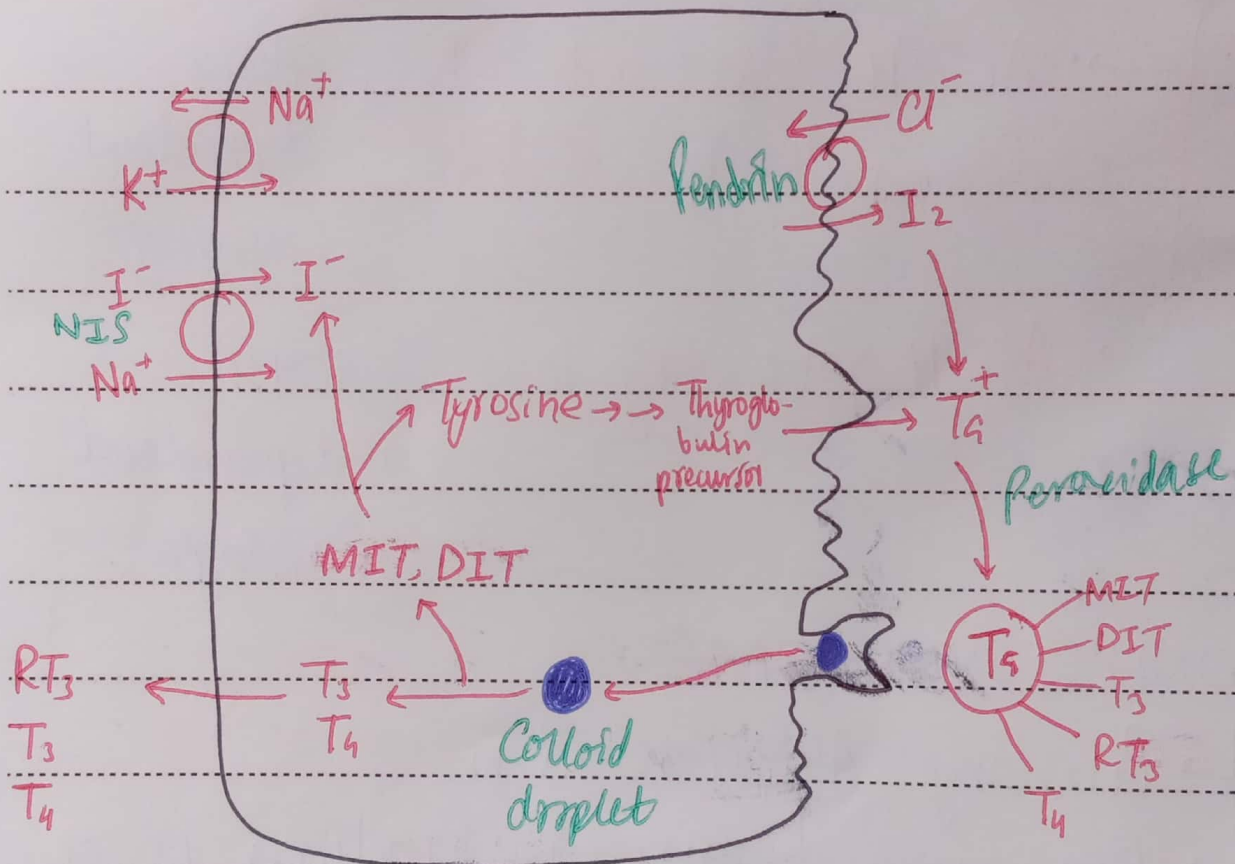 Na⁺
K⁺
I⁻
I⁻
NIS
Na⁺
Cl⁻
Pendrin
I₂
Tyrosine → → Thyroglo-
bulin
precursor
+
Tg
Peroxidase
MIT, DIT
Tg
MIT
DIT
T₃
RT₃
T₄
Colloid
droplet
T₃
T₄
RT₃
T₃
T₄